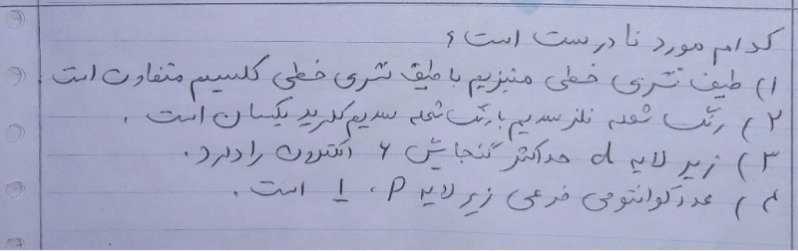 کدام مورد نادرست است؟
۱) طیف نشری خطی منیزیم با طیف نشری خطی کلسیم متفاوت است.
۲) رنگ شعله فلز سدیم با رنگ شعله سدیم کلرید یکسان است.
۳) زیر لایه d حداکثر گنجایش ۶ الکترون را دارد.
۴) عدد کوانتومی فرعی زیر لایه p، 1 است.